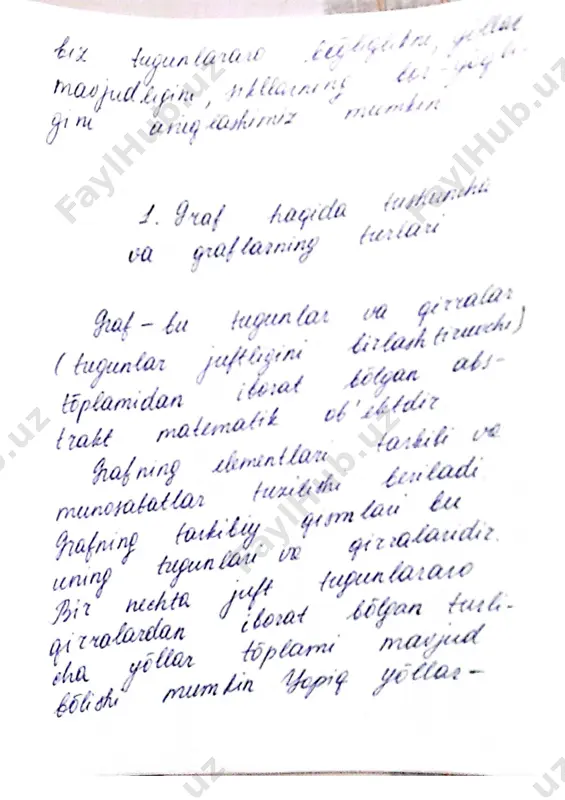 biz tugunlararo bog'liqlikni, yo'llar
mavjudligini, sikllarning bor-yo'qli-
gini aniqlashimiz mumkin
1. Graf haqida tushuncha
va graflarning turlari
Graf – bu tugunlar va qirralar
(tugunlar juftligini birlashtiruvchi)
tõplamidan iborat bõlgan abs-
trakt matematik ob'ektdir
Grafning elementlari tarkibi va
munosabatlar tuzilishi beriladi.
Grafning tarkibiy qismlari bu
uning tugunlari va qirralaridir.
Bir nechta juft tugunlararo
qirralardan iborat bõlgan turli-
cha yõllar tõplami mavjud
bõlishi mumkin Yopiq yõllar –
FaylHub.uz
FaylHub.uz
FaylHub.uz
FaylHub.uz